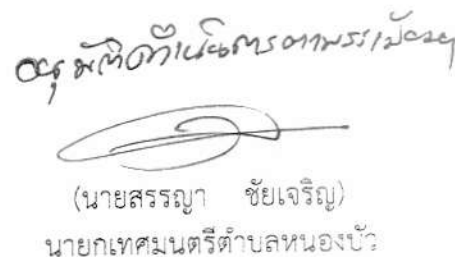 อนุมัติดำเนินการตามระเบียบฯ
(นายสรรญา ชัยเจริญ)
นายกเทศมนตรีตำบลหนองบัว